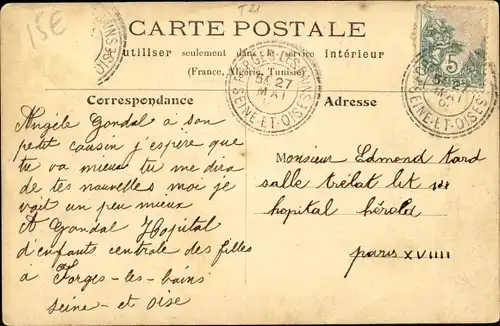 15€
T 21
CARTE POSTALE
utiliser seulement dans le service intérieur
(France, Algérie, Tunisie)
FORGES-LES-BAINS
5E 27
MAI
SEINE-ET-OISE
5
Correspondance
Adresse
Angèle Gondal à son
petit cousin j'espère que
tu va mieux tu me dira
de tes nouvelles moi je
vait un peu mieux
A Gondal Hopital
d'enfants centrale des filles
à Forges-les-bains
Seine-et oise
Monsieur Edmond Tard
salle trélat lit 14
hopital hérold
paris XVIIII